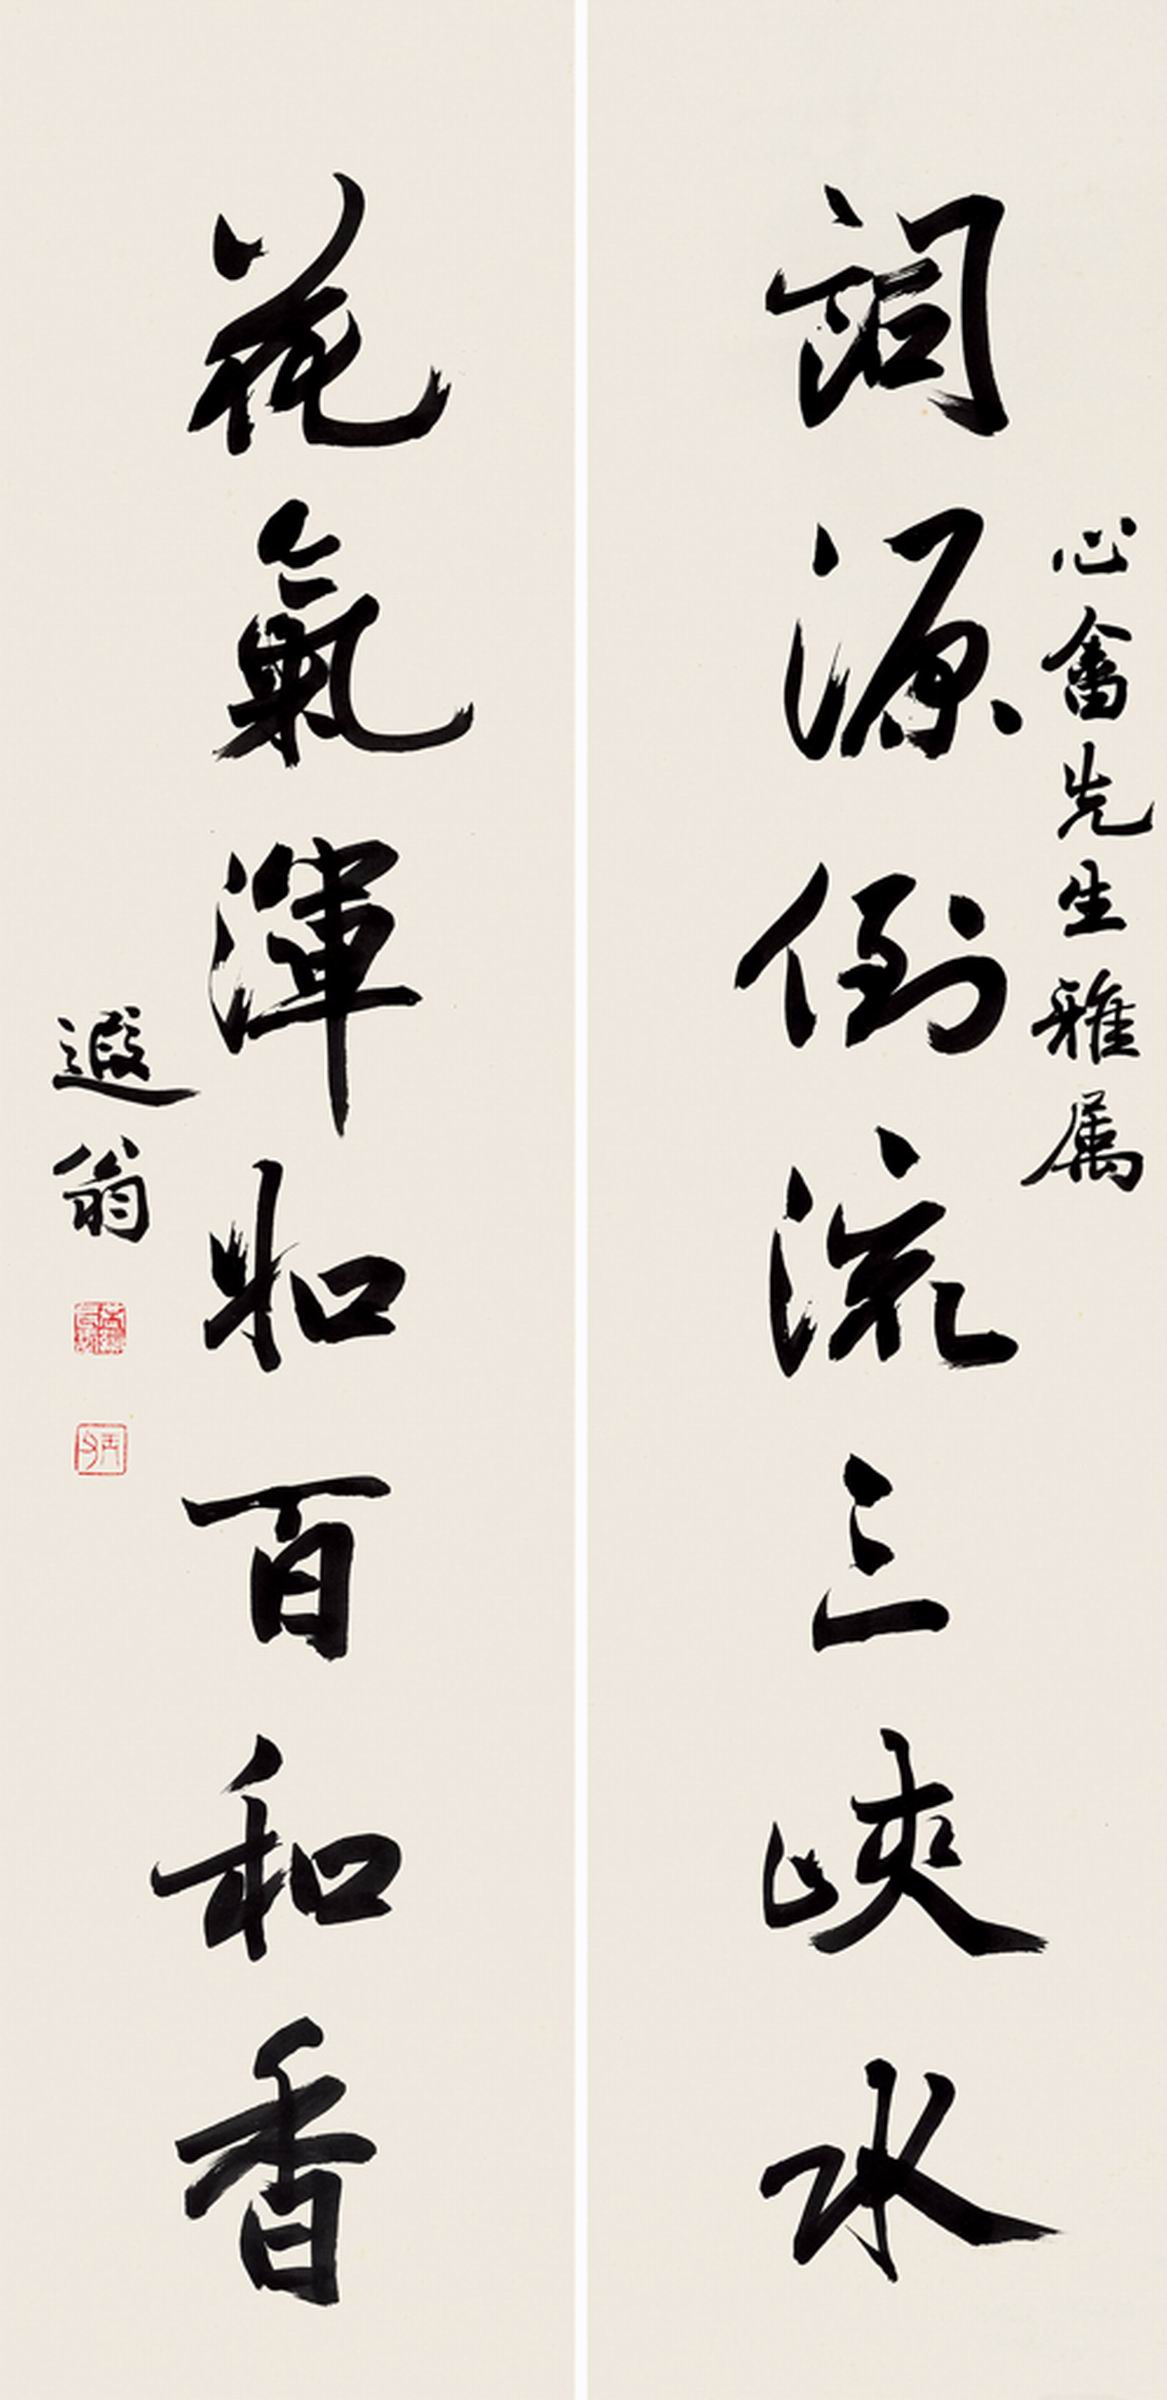 心畬先生雅属
詞源倒流三峽水
花氣渾如百和香
遐翁